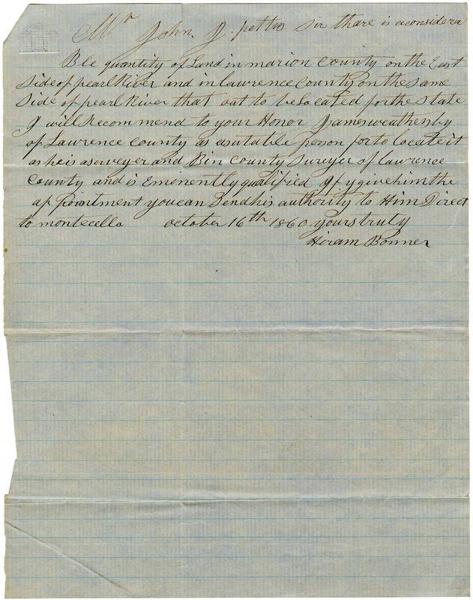 Mr John J. pettus Sir thare is aconsidera
Ble quantity of Land in marion County on the East
Side of pearl River and in Lawrence County on the Same
Side of pearl River that out to be Located for the State
I will Recommend to your Honor James weathersby
of Lawrence County as asutable person for to Locate it
as he is a surveyer and Bin County Surveyer of Lawrence
County and is Eminently qualified If y give him the
appointment you can Send his authority to Him Direct
to montecello october 16th 1860 yours truly
Hiram Bonner